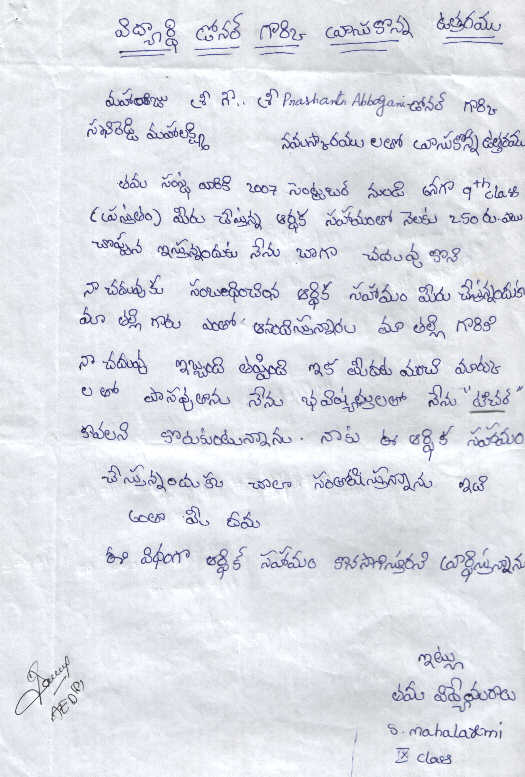 విద్యార్థి డోనర్ గారికి వ్రాసుకొన్న ఉత్తరము
మహారాజు శ్రీ గౌ.. శ్రీ Prashanth Abbagani డోనర్ గారికి
సానిరెడ్డి మహాలక్ష్మి నమస్కారములతో వ్రాసుకొన్న ఉత్తరము
తమ సంస్థ వారికి 2007 సెంట్బబర్ నుండి అనగా 9th class
(ప్రస్తుతం) మీరు చేస్తున్న ఆర్థిక సహాయంతో నెలకు 250 రు.
చొప్పున ఇస్తున్నందుకు నేను బాగా చదువు కొని
నా చదువుకు సంబంధించిన ఆర్థిక సహాయం మీరు చేస్తున్నందుకు
మా తల్లి గారు ఎంతో ఆనందిస్తున్నారు మా తల్లి గారికి
నా చదువు ఇబ్బంది తప్పింది ఇక మీదట మంచి మార్కు
ల తో పాసవుతాను నేను భవిష్యత్తులలో నేను "టీచర్"
కావలని కొరుకుంటున్నాను. నాకు ఈ ఆర్థిక సహాయం
చేస్తున్నందుకు చాలా సంతోషిస్తున్నాను ఇది
అంతా మీ దయ
ఈ విధంగా ఆర్థిక సహాయం కొనసాగిస్తారని ప్రార్థిస్తున్నాను
ఇట్లు
తమ విధేయురాలు
S. mahalaxmi
IX class